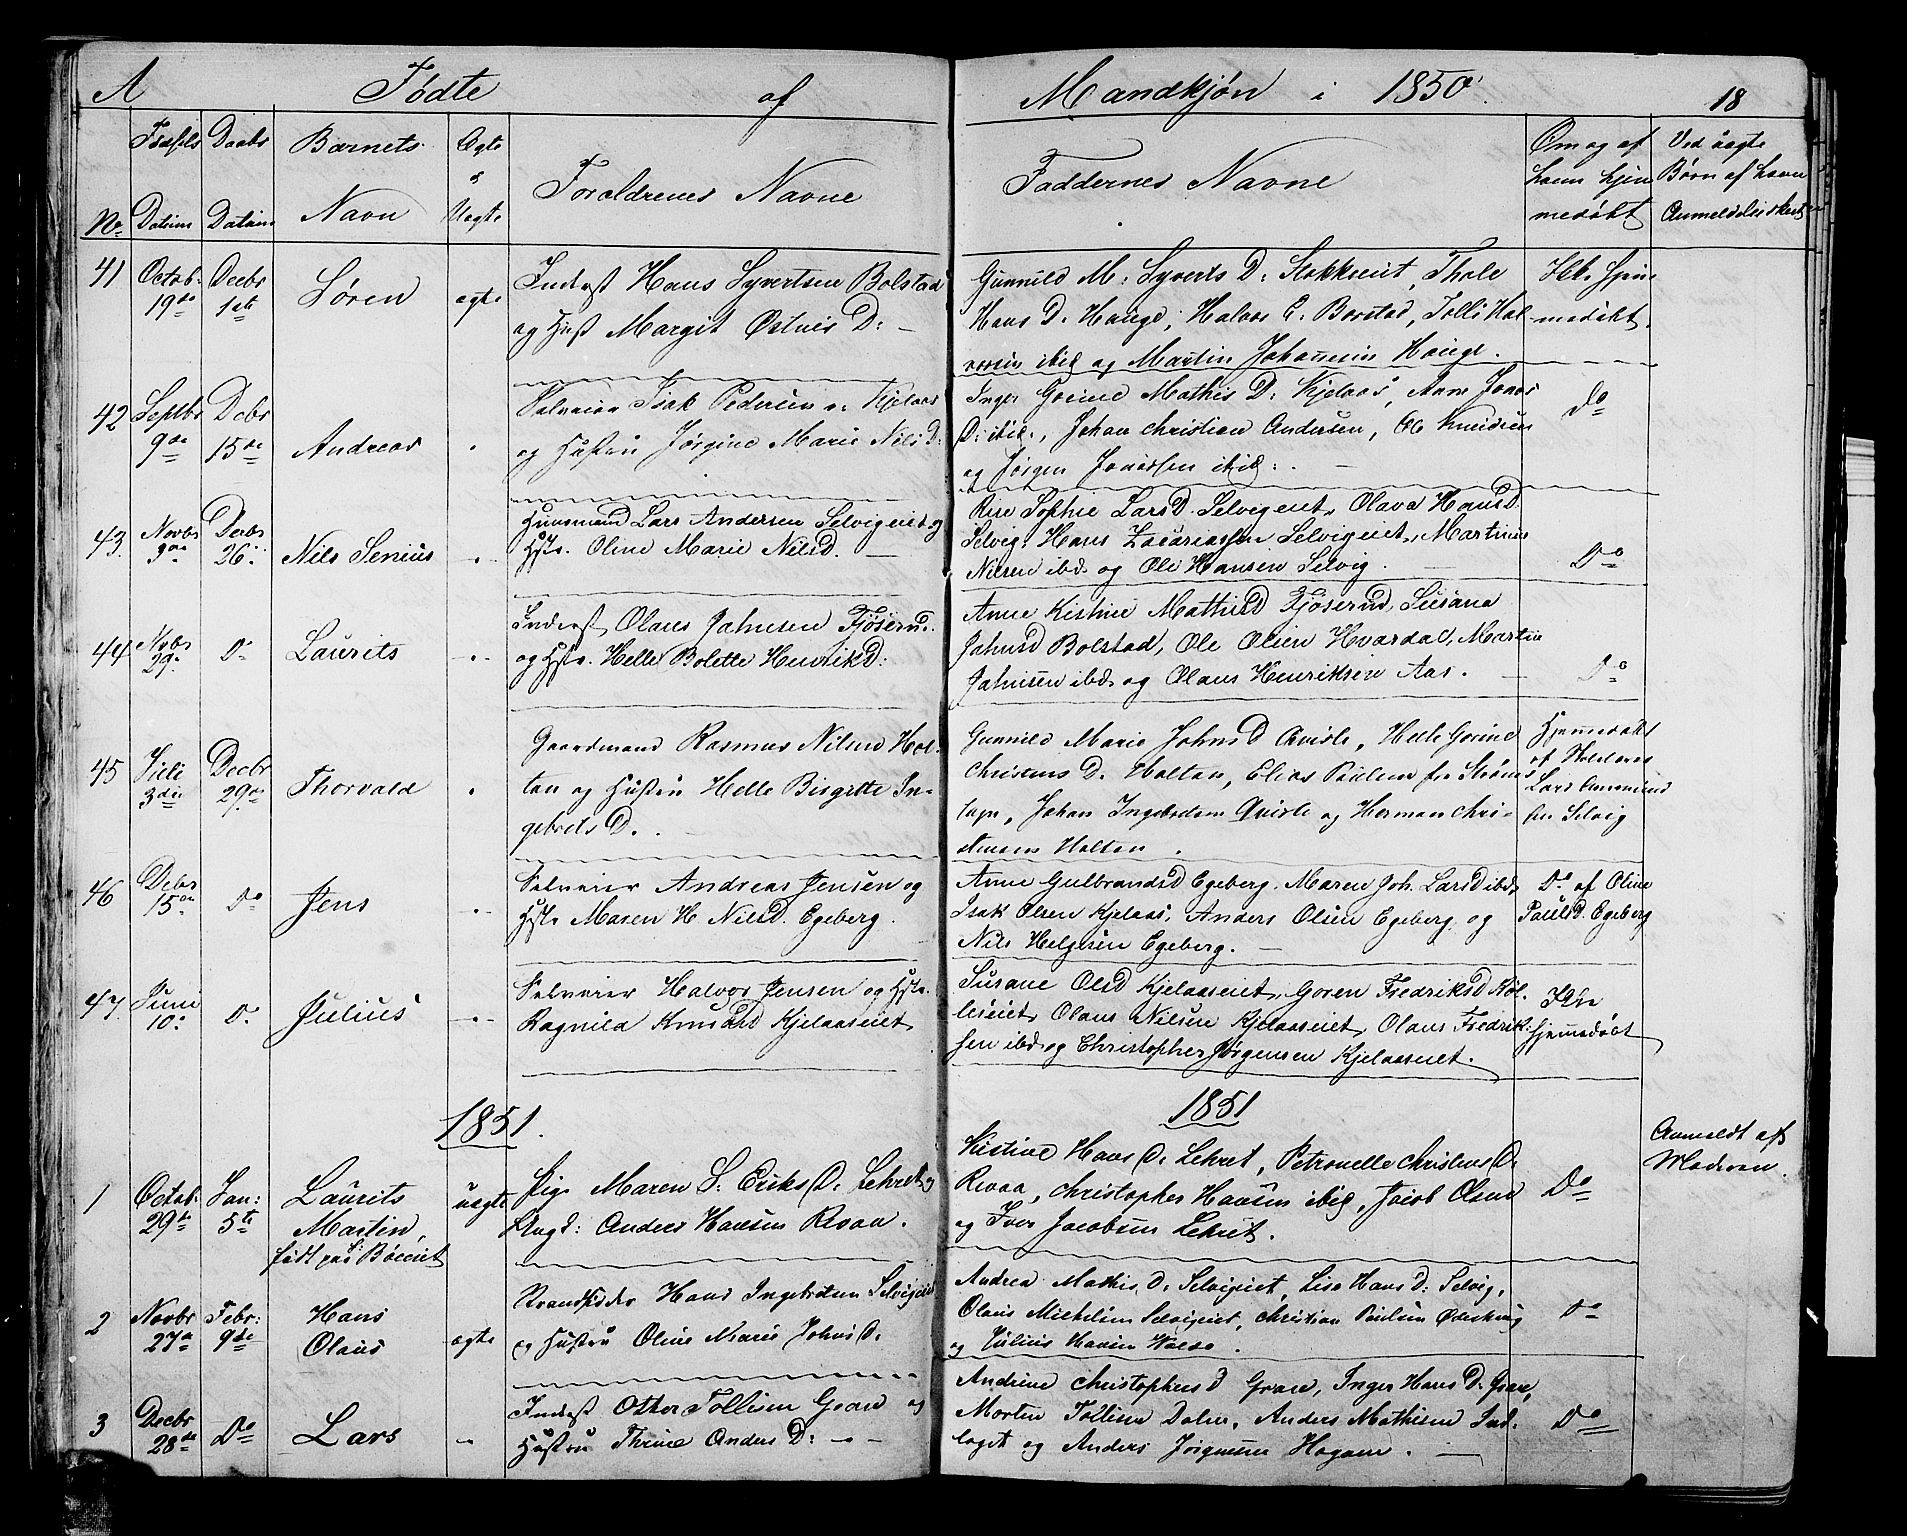 A Fødte af Mandkjøn i 1850. 18
No. Fødsels Datum Daabs Datum Barnets Navn Ægte & Uægte Forældrenes Navne Faddernes Navne Om og af hvem hjemmedøbt Ved uægte Børn af hvem Anmeldelse skeet
41 Octob. 19de Decbr 1ste Søren ægte
Inderst Hans Syvertsen Bolstad
og Hust Margit Østens D: —
Gunnild M: Syverts D: Stokkeeiet, Thole
Hans D. Hauge, Halvor C: Borstad, Tolli Hal-
vorsen ibid og Martin Johannesen Hauge.
Ikke hjem
medøbt.
42 Septbr 9de Debr 15de Andreas "
Selveier Isak Pedersen v: Kjelaas
og Hustru Jørgine Marie Nils D:
Inger Gorine Mathis D: Kjelaas, Anne Jonas
D: ibid., Johan Christian Andersen, Ole Knudsen
og Jørgen Jonassen ibid: . —
Do
43 Novbr 9de Decbr 26. Nils Senius "
Huusmand Lars Andersen Selvigeiet og
Hstr. Oline Marie Nilsd. —
Rise Sophie LarsD. Selvigeiet, Olava HansD.
Selvig, Hans Zacariassen Selvigeiet, Martinus
Nilsen ibd. og Ole Hansen Selvig. —
Do
44 Novbr 29. D. Laurits "
Inderst Olaus Jahnsen Fjøserud.
og Hstr. Helle Bolette HenrikD:
Anne Kistine MathisD Fjøserud, Susana
JahnsD Bolstad, Ole Olsen Hvardal, Martin
Jahnsen ibd. og Olaus Henriksen Aas. —
Do
45 Juli 3die Decbr 29de Thorvald "
Gaardmand Rasmus Nilsen Hol-
tan og Hustru Helle Birgitte In-
gebrets D. . —
Gunnild Marie JohnsD Qvisle, Helle Gorine
Christens D. Holtan, Elias Paulsen fra Strøms
, Johan Ingebretsen Qvisle og Herman Chri-
stensen Holtan .
Hjemmedøbt
af
Lars
Selvig
46 Debr 15de Do Jens "
Selveier Andreas Jensen og
Hstr Maren H. NilsD. Egeberg.
Anne GulbrandsD Egeberg, Maren Joh. LarsD ibd,
Isak Olsen Kjelaas, Anders Olsen Egeberg og
Nils Helgesen Egeberg. —
Do af Oline
PaulsD. Egeberg
47 Juni 10. D. Julius "
Selveier Halvor Jensen og Hstr.
Ragnild KnudsD Kjelaaseiet
Susane OlsD Kjelaaseiet, Goren FredriksD Køl-
leseiet, Olaus Nilsen Kjelaaseiet, Olaus Fredrik-
sen ibd og Christopher Jørgensen Kjelaaseiet.
Ikke
hjemmedøbt
1851. 1851
1 Octob. 29de Jan: 5te Laurits
Martin,
født paa Bøeeiet uægte
Pig. Maren S. Eriks D. Lekret og
Ungk: Anders Hansen Revaa.
Kistine Hans D. Lekret, Petronelle Christens D.
Revaa, Christopher Hansen ibid, Jacob Olsen
og Iver Jacobsen Lekret.
Do
Anmeldt af
Moderen.
2 Novbr 27de Febr: 9de Hans
Olaus ægte
Strandsidder Hans Ingebretsen Selvigeiet
og Hustru Oline Marie Johns D.
Andrea Mathis D. Selvigeiet, Lise Hans D: Selvig,
Olaus Michelsen Selvigeiet, Christian Paulsen
og Julius Hansen .
Do
3 Decbr 28de Do Lars "
Inderst Otter Tollisen Graae og
Hustru Thrine Anders D: — —
Andrine Christophers D Graae, Inger Hans D. Graae,
Morten Tollisen Dalen, Anders Mathisen Ind-
laget og Anders Jørgensen Hagane . —
Do